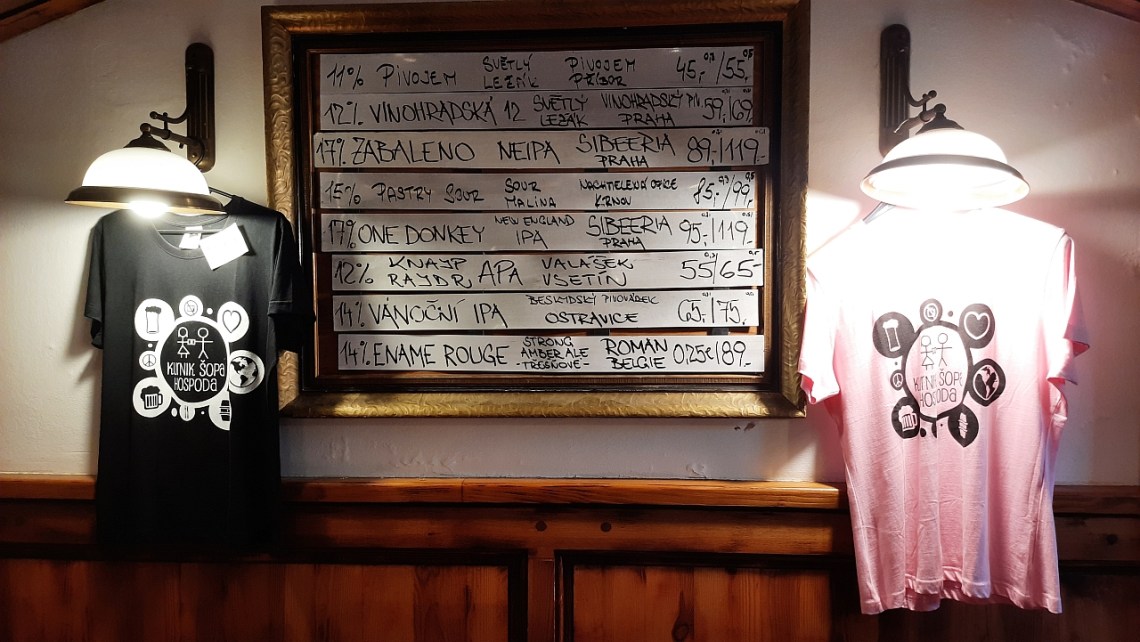 11% PIVOJEM SVĚTLÝ LEŽÁK PIVOJEM PŘÍBOR 45,-/55,-
12% VINOHRADSKÁ 12 SVĚTLÝ LEŽÁK VINOHRADSKÝ PIV. PRAHA 59/69,-
17% ZABALENO NEIPA SIBEERIA PRAHA 89,-/119.-
15% PASTRY SOUR SOUR MALINA NACHMELENÁ OPICE KRNOV 85,-/99,-
17% ONE DONKEY NEW ENGLAND IPA SIBEERIA PRAHA 95,-/119.-
12% KNAJP RAJDR APA VALÁŠEK VSETÍN 55/65.-
14% VÁNOČNÍ IPA BESKYDSKÝ PIVOVÁREK OSTRAVICE 65,-/75,-
14% ENAME ROUGE STRONG AMBER ALE -TŘEŠŇOVÉ- ROMAN BELGIE 0,25l/89.-
KURNIK ŠOPA
HOSPODA
KURNIK ŠOPA
HOSPODA